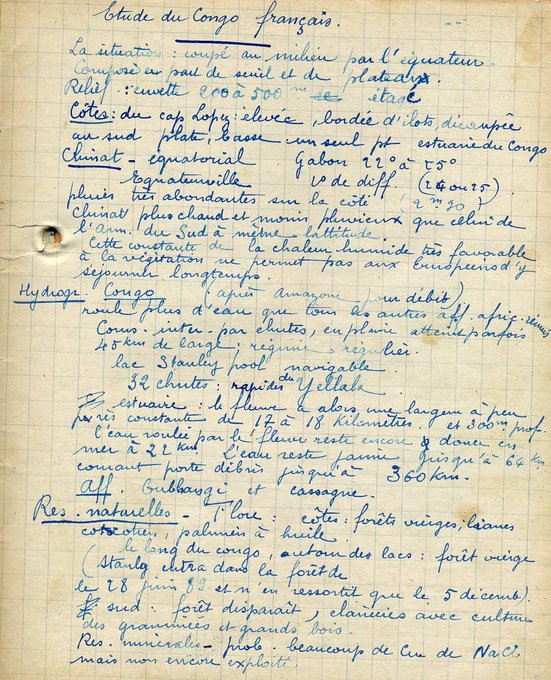 Etude du Congo français.
La situation : coupé au milieu par l'équateur.
Composé en part de seuil et de plateaux.
Relief : cuvette 200 à 500 m étagé
Côtes : du cap Lopez : élevée, bordée d'ilots, découpée
au sud plate, basse un seul pt estuaire du Congo
Climat - equatorial Gabon 22° à 25°
Equateurville 1° de diff. (24 ou 25)
pluies très abondantes sur la côte (2m 30)
Climat plus chaud et moins pluvieux que celui de
l'Am. du Sud à même lattitude.
Cette constante de la chaleur humide très favorable
à la végétation ne permet pas aux Européens d'y
séjourner longtemps.
Hydrogr. Congo (après Amazone pour débit)
roule plus d'eau que tous les autres aff. afric. réunis
Cours. inter. par chutes, en plaine atteint parfois
45 km de large, régime régulier.
lac Stanley pool navigable.
32 chutes : rapides du Yellala
estuaire : le fleuve a alors une largeur à peu
près constante de 17 à 18 kilomètres et 300 m prof.
L'eau roulée par le fleuve reste encore douce en
mer à 22 km. L'eau reste jaune jusqu'à 64 km
courant porte débris jusqu'à 360 km.
Aff. Oubhangi et cassagne.
Res. naturelles - Flore : côtes : forêts vierges, lianes
cocotiers, palmiers à huile.
le long du congo, autour des lacs : forêt vierge
(Stanley entra dans la forêt de
le 28 juin 89 et n'en ressortit que le 5 décemb).
sud : forêt disparait, clairières avec culture
des graminées et grands bois.
Res. minérales - prob. beaucoups de Cu de NaCl
mais non encore exploité